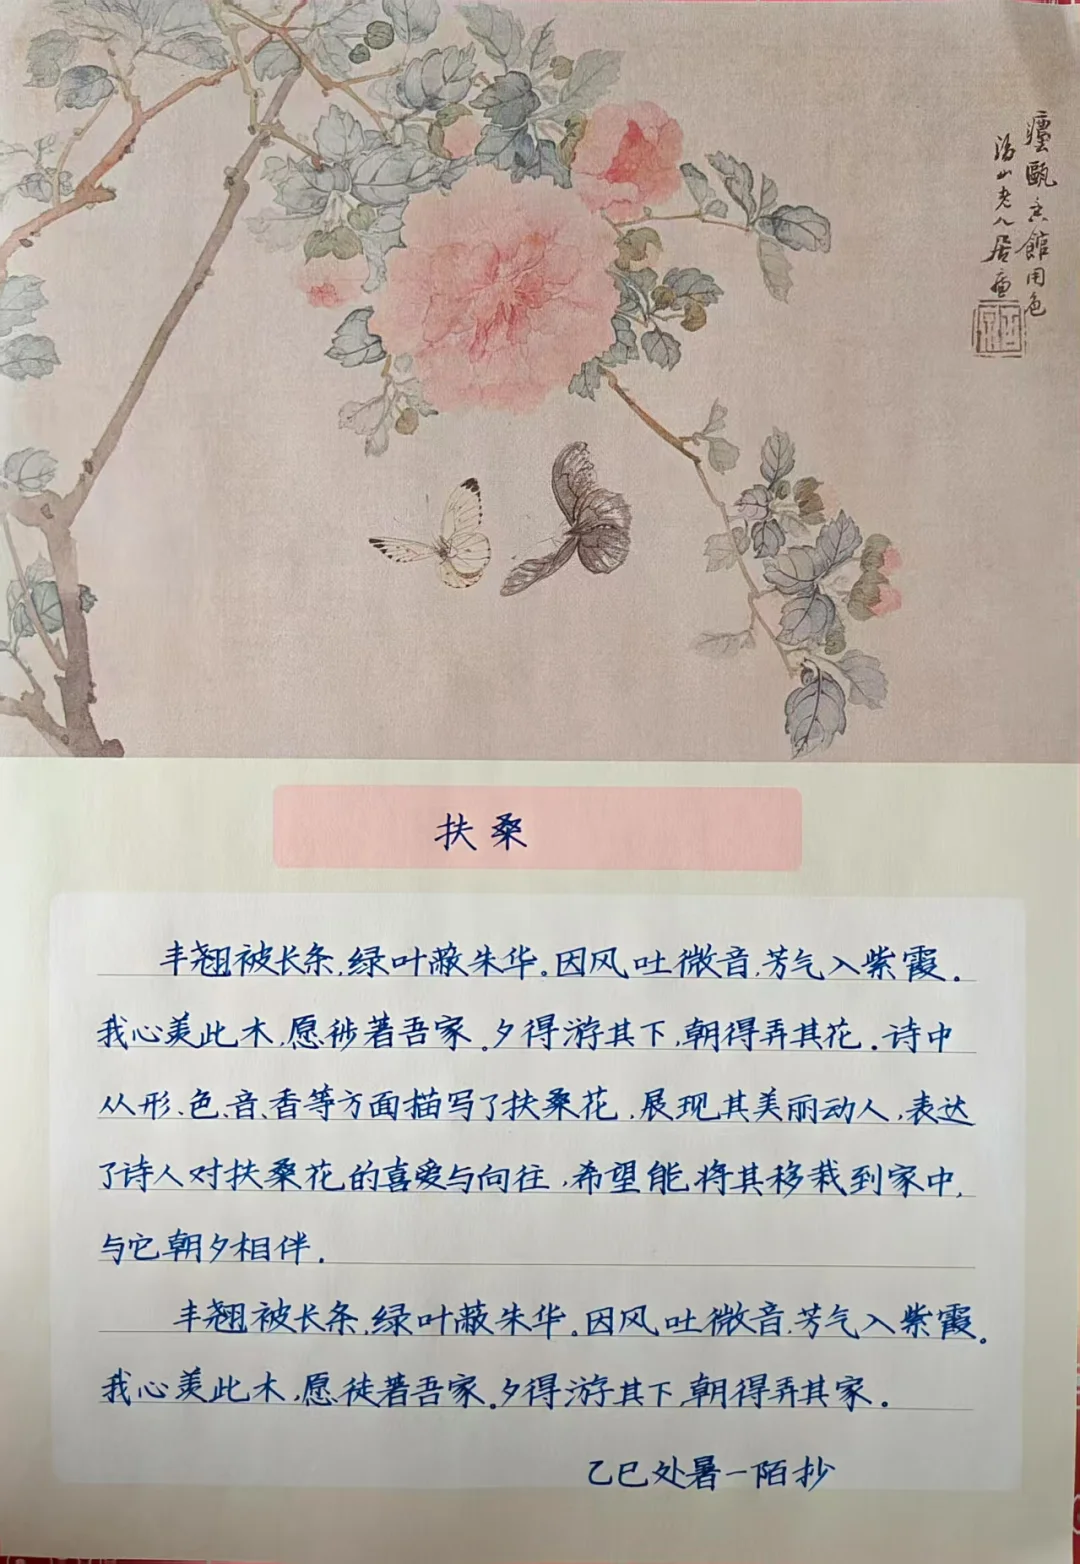 瓯香馆用色
居廉
扶桑
丰翘被长条,绿叶蔽朱华。因风吐微音,芳气入紫霞。
我心羡此木,愿徙著吾家。夕得游其下,朝得弄其花。诗中
从形、色、音、香等方面描写了扶桑花,展现其美丽动人,表达
了诗人对扶桑花的喜爱与向往,希望能将其移栽到家中,
与它朝夕相伴。
丰翘被长条,绿叶蔽朱华。因风吐微音,芳气入紫霞。
我心羡此木,愿徒著吾家。夕得游其下,朝得弄其家。
乙巳处暑一陌抄